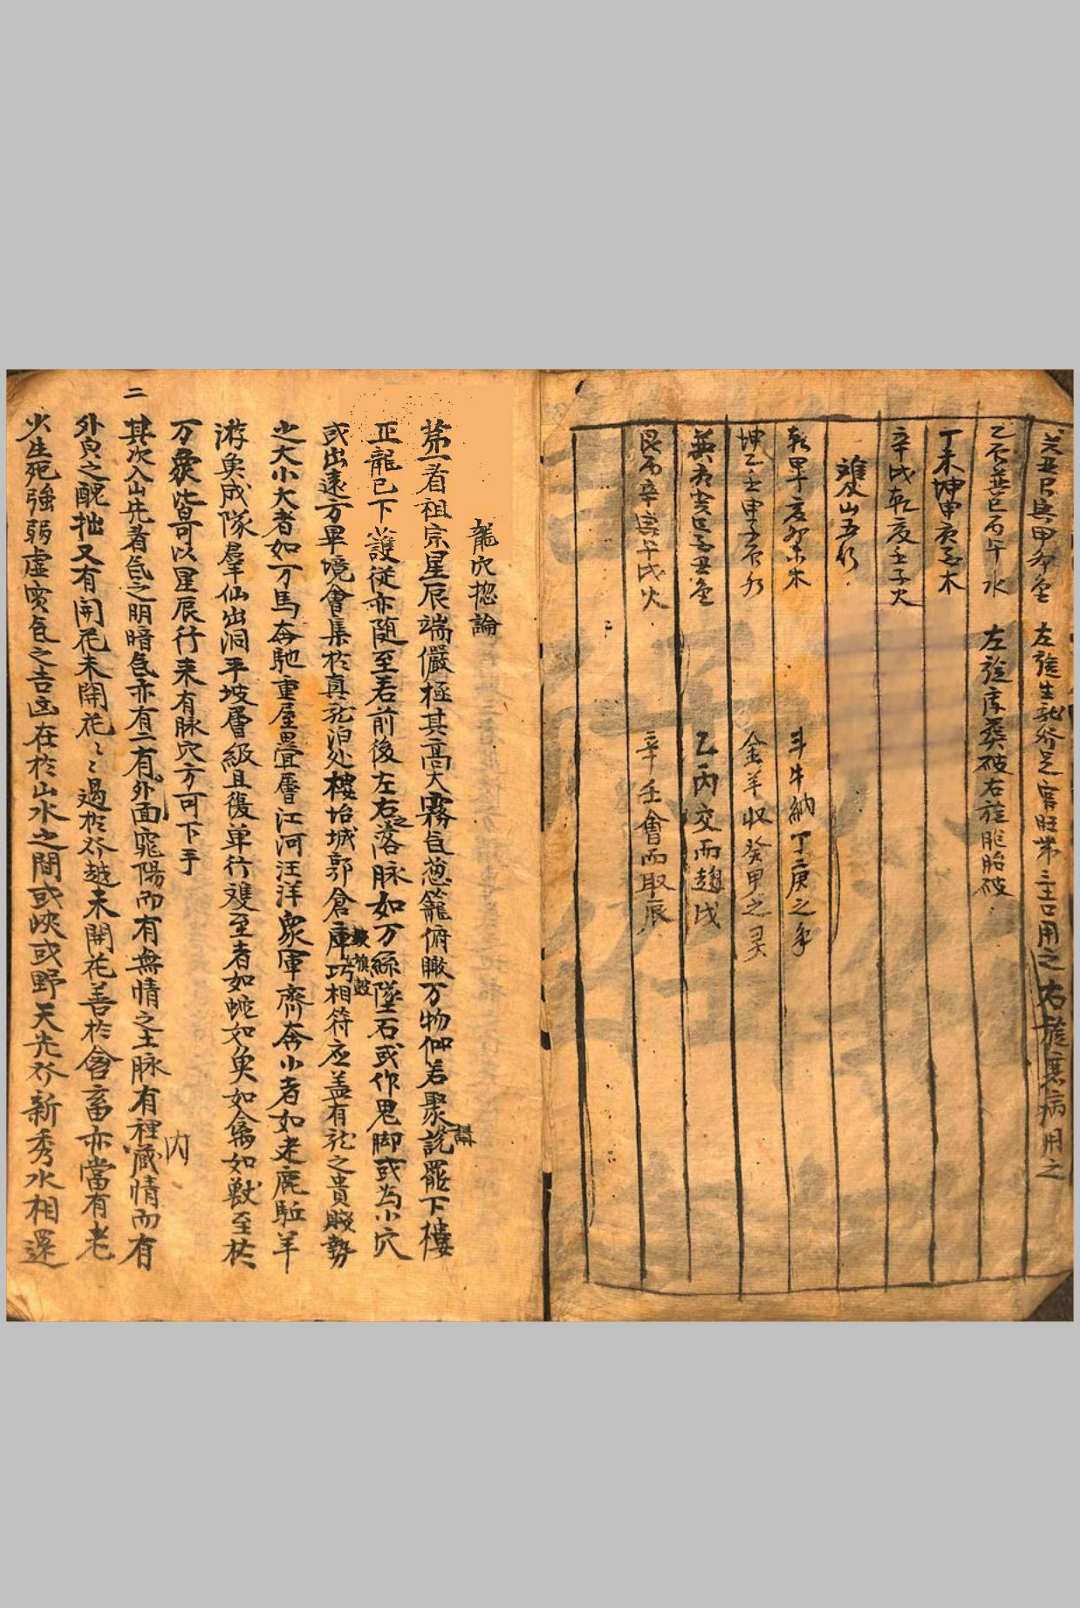 癸丑艮寅甲卯金 左旋生龍於是官旺第三口用之右旋衰病用之
乙辰巽巳丙午水 左旋庫葬破右旋胞胎破
丁未坤申庚酉木
辛戌乾亥壬子火
雙山五行
乾甲丁亥卯未木 斗牛納丁庚之氣
坤乙壬申子辰水 金羊收癸甲之灵
巽庚癸巳酉丑金 乙丙交而趨戌
艮丙辛寅午戌火 辛壬會而取辰
龍穴揔論
苐一看祖宗星辰端儼極其高大霧气葱籠俯瞰万物仰若聚說講罷下樓
正龍已下護從亦随至若前後左右之落脉如万絲墜石或作鬼脚或為小穴
或出遠方畢境會集於真龍泊处樓坮城郭倉庫旗皷巧相符应盖有龍之貴賤勢
之大小大者如万馬奔馳重屋疊層江河汪洋衆軍齊奔小者如走鹿駈羊
游魚成隊羣仙出洞平坡層級且復单行雙至者如蛇如魚如禽如獸至於
万象皆可以星辰行来有脉穴方可下手
其次入山先看気之明暗气亦有二有外面宛陽而有無情之土脉有裡藏情而有 内
外皃之醜拙又有開花未開花ミ過於於越未開花善於含畜亦當有老
少生死強弱虛实气之吉凶在於山水之間或峽或野天光於新秀水相還
二